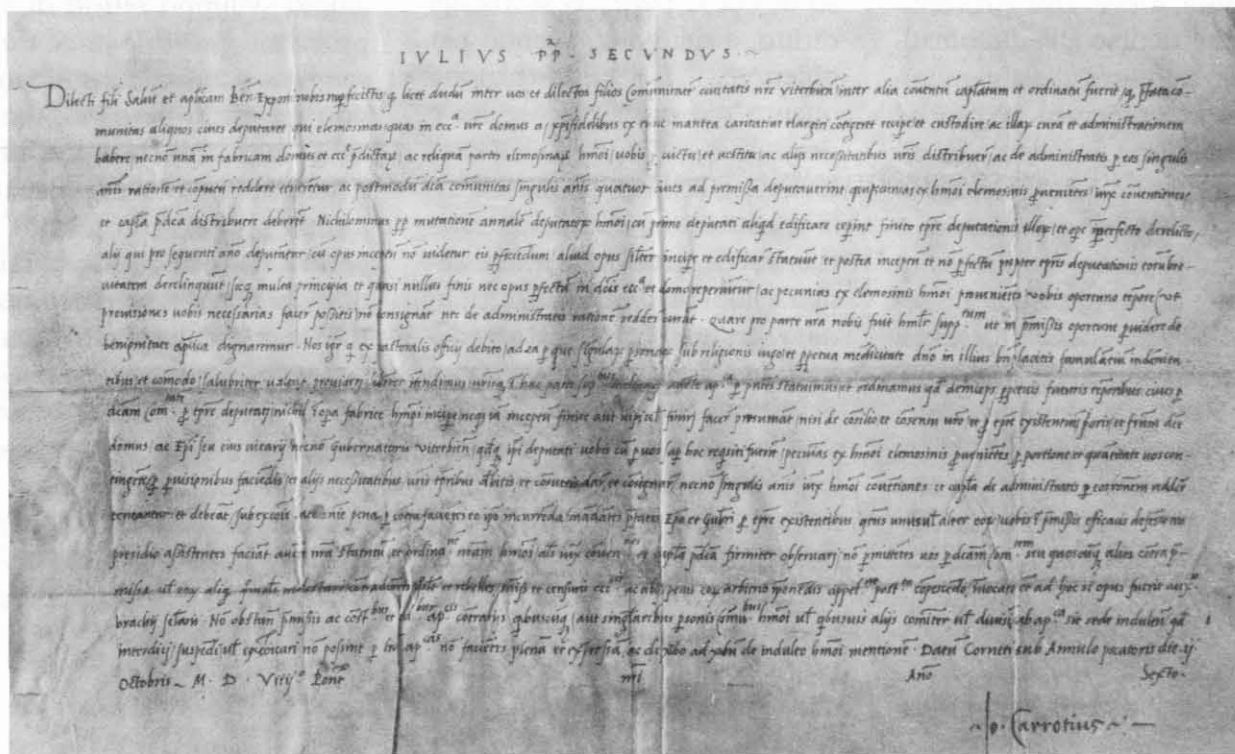 IULIUS · PP̃ · SECVNDVS ·
Dilecti filij Salutẽ et aplicam Ben. Exponi nobis nup fecistis q licet dudũ inter vos et dilectos filios Comunitatẽ civitatis nr̃e Viterbieñ inter alia conventũ capl̃atum et ordinatũ fuerit q pr̃fata co-
munitas aliquos cives deputaret qui elemosinas quas in ecc.ª vr̃e domus a xp̃ifidelibus ex tunc mantea caritative elargiri contigeret recipe et custodire ac illaꝝ curã et administrationem
habere necnõ unã in fabricam domus et ecc.ᵉ pr̃dictaꝝ ac reliquã partẽ elemosinaꝝ hmõi vobis p victu et vestitu ac alijs necessitatibus vr̃is distribuer ac de administratis p eos singulis
anis rationẽ et cõputũ reddere teneretur ac postmodũ dc̃a comunitas singulis anis quatuor cives ad premissa deputaverint ex hmõi elemosinis pvenientes iux̃ conventiones
et capl̃a p̃dca distribuere deberẽt Nichilominus pp̃ mutationẽ annalẽ deputatoꝝ hmõi cũ primo deputati aliqd edificare cepint finito tpr̃e deputationis illoꝝ et ope imperfecto derelicto,
alij qui pro sequenti año deputãtur cũ opus inceptũ nõ videtur eis pficiẽdum aliud opus sil̃iter incipe et edificar statuũt et postea inceptũ et nõ pfectũ propter tpr̃is deputationis brẽ-
vitatem derelinquũt sicq multa principia et quasi nullus finis nec opus pfectũ in dc̃is ecc.ª et domo reperiũtur ac pecunias ex elemosinis hmõi provenietes vobis oportuno tẽpore ut
provisiones vobis necessarias facer possitis nõ consignãt nec de administratis rationẽ redder curãt · Quare pro parte vr̃a nobis fuit hmlr supp.ᵗᵘᵐ ut in pr̃missis oportune puidere de
benignitate aplica dignaremur · Nos igr̃ q ex pastoralis officij debito ad ea p que singlaꝝ psonaꝝ sub religionis iugo et ppetua mediciente dño in illius bñplacitis famulatum indemni-
tatibus et comodo salubriter valeat provideri libenter vr̃is in hac parte sup.ᵇᵘˢ inclinati aucte ap.ᶜᵃ p pñtes statuimus et ordinamus qd deinceps ppetuis futuris tẽporibus cives p
dcam Com.ᵗᵃᵗᵉ p tpr̃e deputati nichil ĩ opa fabrice hmõi incipe neq iã inceptũ finire aut finiri facer presumãt nisi de consilio et cosensu vr̃o et p tpr̃e existentiũ prioris et fratrũ dc̃e
domus ac Epĩ seu eius vicarij necnõ Gubernatoris Viterbieñ qdq ip̃i deputati vobis cũ p vos sup hoc requisiti fuerint pecunias ex hmõi elemosinis pvenietes p portione et quãtitate vos con-
tingẽte p puisionibus faciẽdis et alijs necessitatibus vr̃is tẽporibus debitis et dar et consignar necnõ singulis anis iux̃ hmõi conventiones et capl̃a de administratis p eos rationem redder
teneantur et debeãt sub excõis late sñie pena p contrafacietes eo ip̃o incurrẽda mandãtes pñtibus Epõ et Gubri p tpr̃e existentibus qtus unusul alter eoꝝ vobis ĩ pr̃missis efficacis defensionis
presidio assistentes faciãt aucte nr̃a statutũ et ordina.ⁿᵉ nr̃am hmõi conven.ⁿᵉˢ et capl̃a pdca firmiter observari nõ pmittetes vos p dcam Com.ᵗᵉᵐ seu quoscũq alios contra p-
missa ul̃ eoꝝ aliqd molestari contradictores et rebelles et censuris ecc.ᶜⁱˢ ac alijs penis eoꝝ arbitrio iponẽdis appel.ⁿᵉ post.ᵗᵃ copescẽdo invocato et ad hoc si opus fuerit aux.º
brachij sclãris · Nõ obstan p̃missis ac cõst.ᵇᵘˢ et ord.ᵇᵘˢ ap.ᶜⁱˢ contrarijs quibuscũq aut si singlaribus psonis Com.ᵇᵘˢ hmõi ul̃ quibusuis alijs cõmiter ul̃ diuisĩ ab ap.ᶜᵃ sit sede indultũ qd
interdici suspẽdi ul̃ excõicari nõ possint p lr̃as ap.ᶜᵃˢ nõ facietes plenã et expressã ac de vbo ad vbũ de indulto hmõi mentionẽ · Datũ Corneti sub Annulo piscatoris die ij
Octobris M · D · Viij.º Pont.ᵘˢ nr̃i Año Sexto ·
Jo. Carrotius